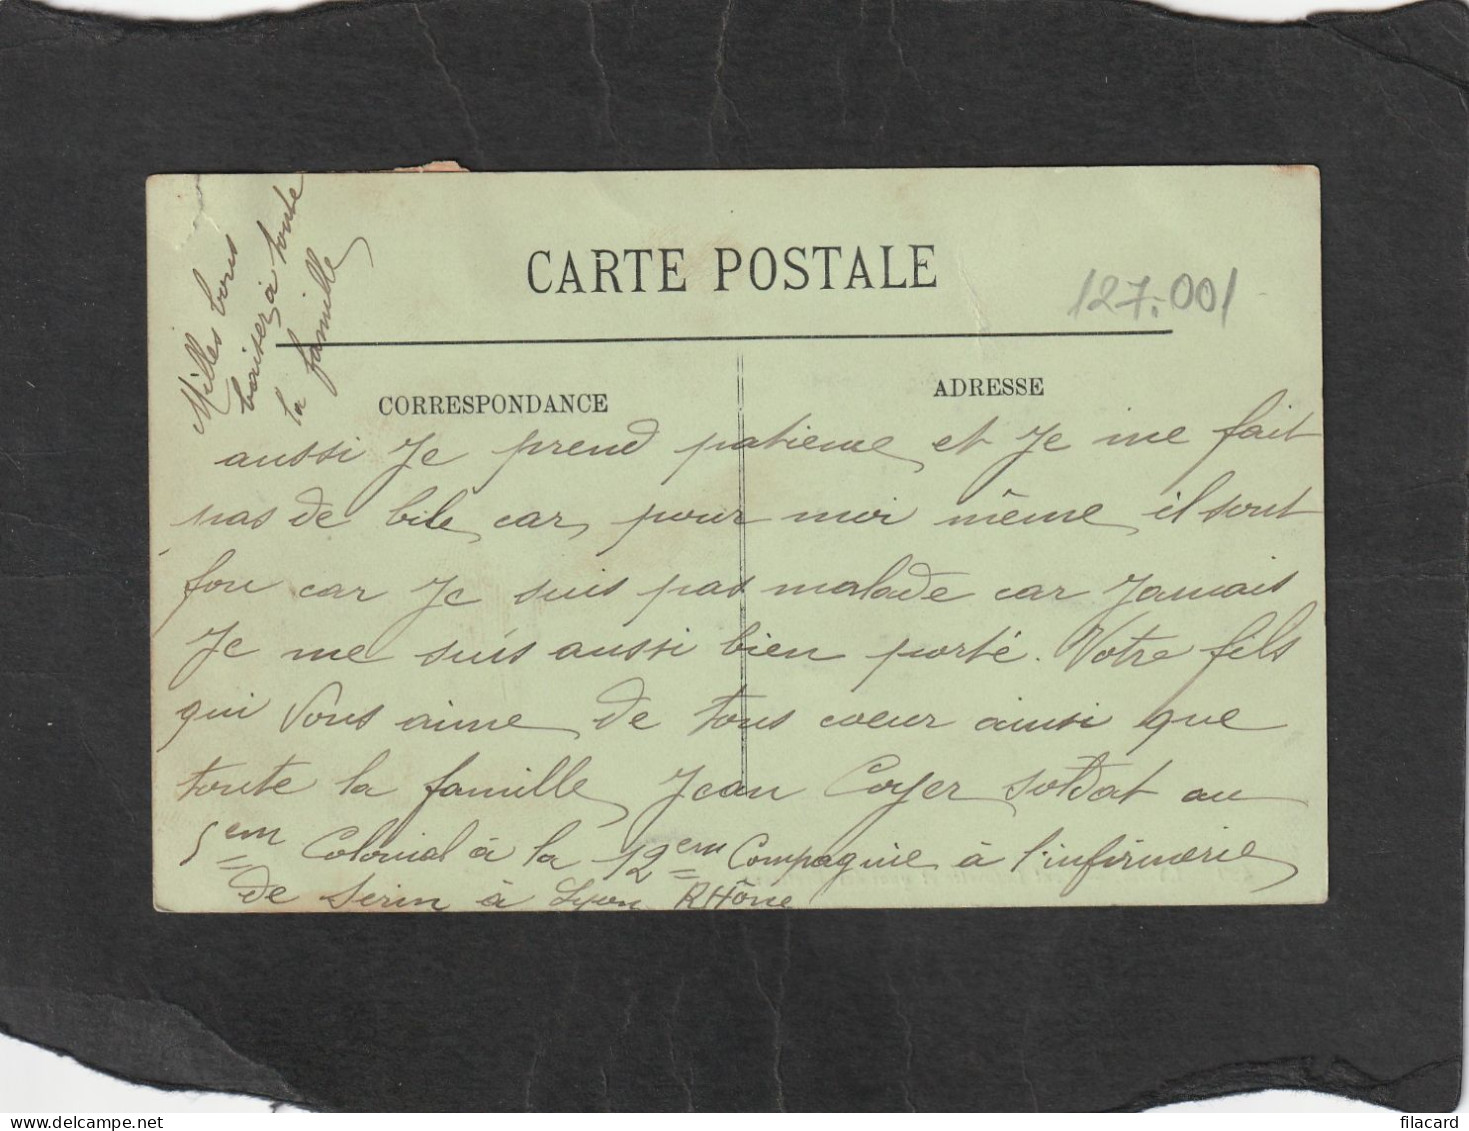 Milles bons
baiser à toute
la famille
CARTE POSTALE
127.001
CORRESPONDANCE
ADRESSE
aussi Je prend patience et Je me fait
pas de bile car pour moi même il sont
fou car Je suis pas malade car Jamais
Je me suis aussi bien porté. Votre fils
qui Vous aime de tous coeur ainsi que
toute la famille Jean Coyer soldat au
5em Colonial à la 12em Compagnie à l'infirmerie
de Serin à Lyon RHône
filacard
www.delcampe.net